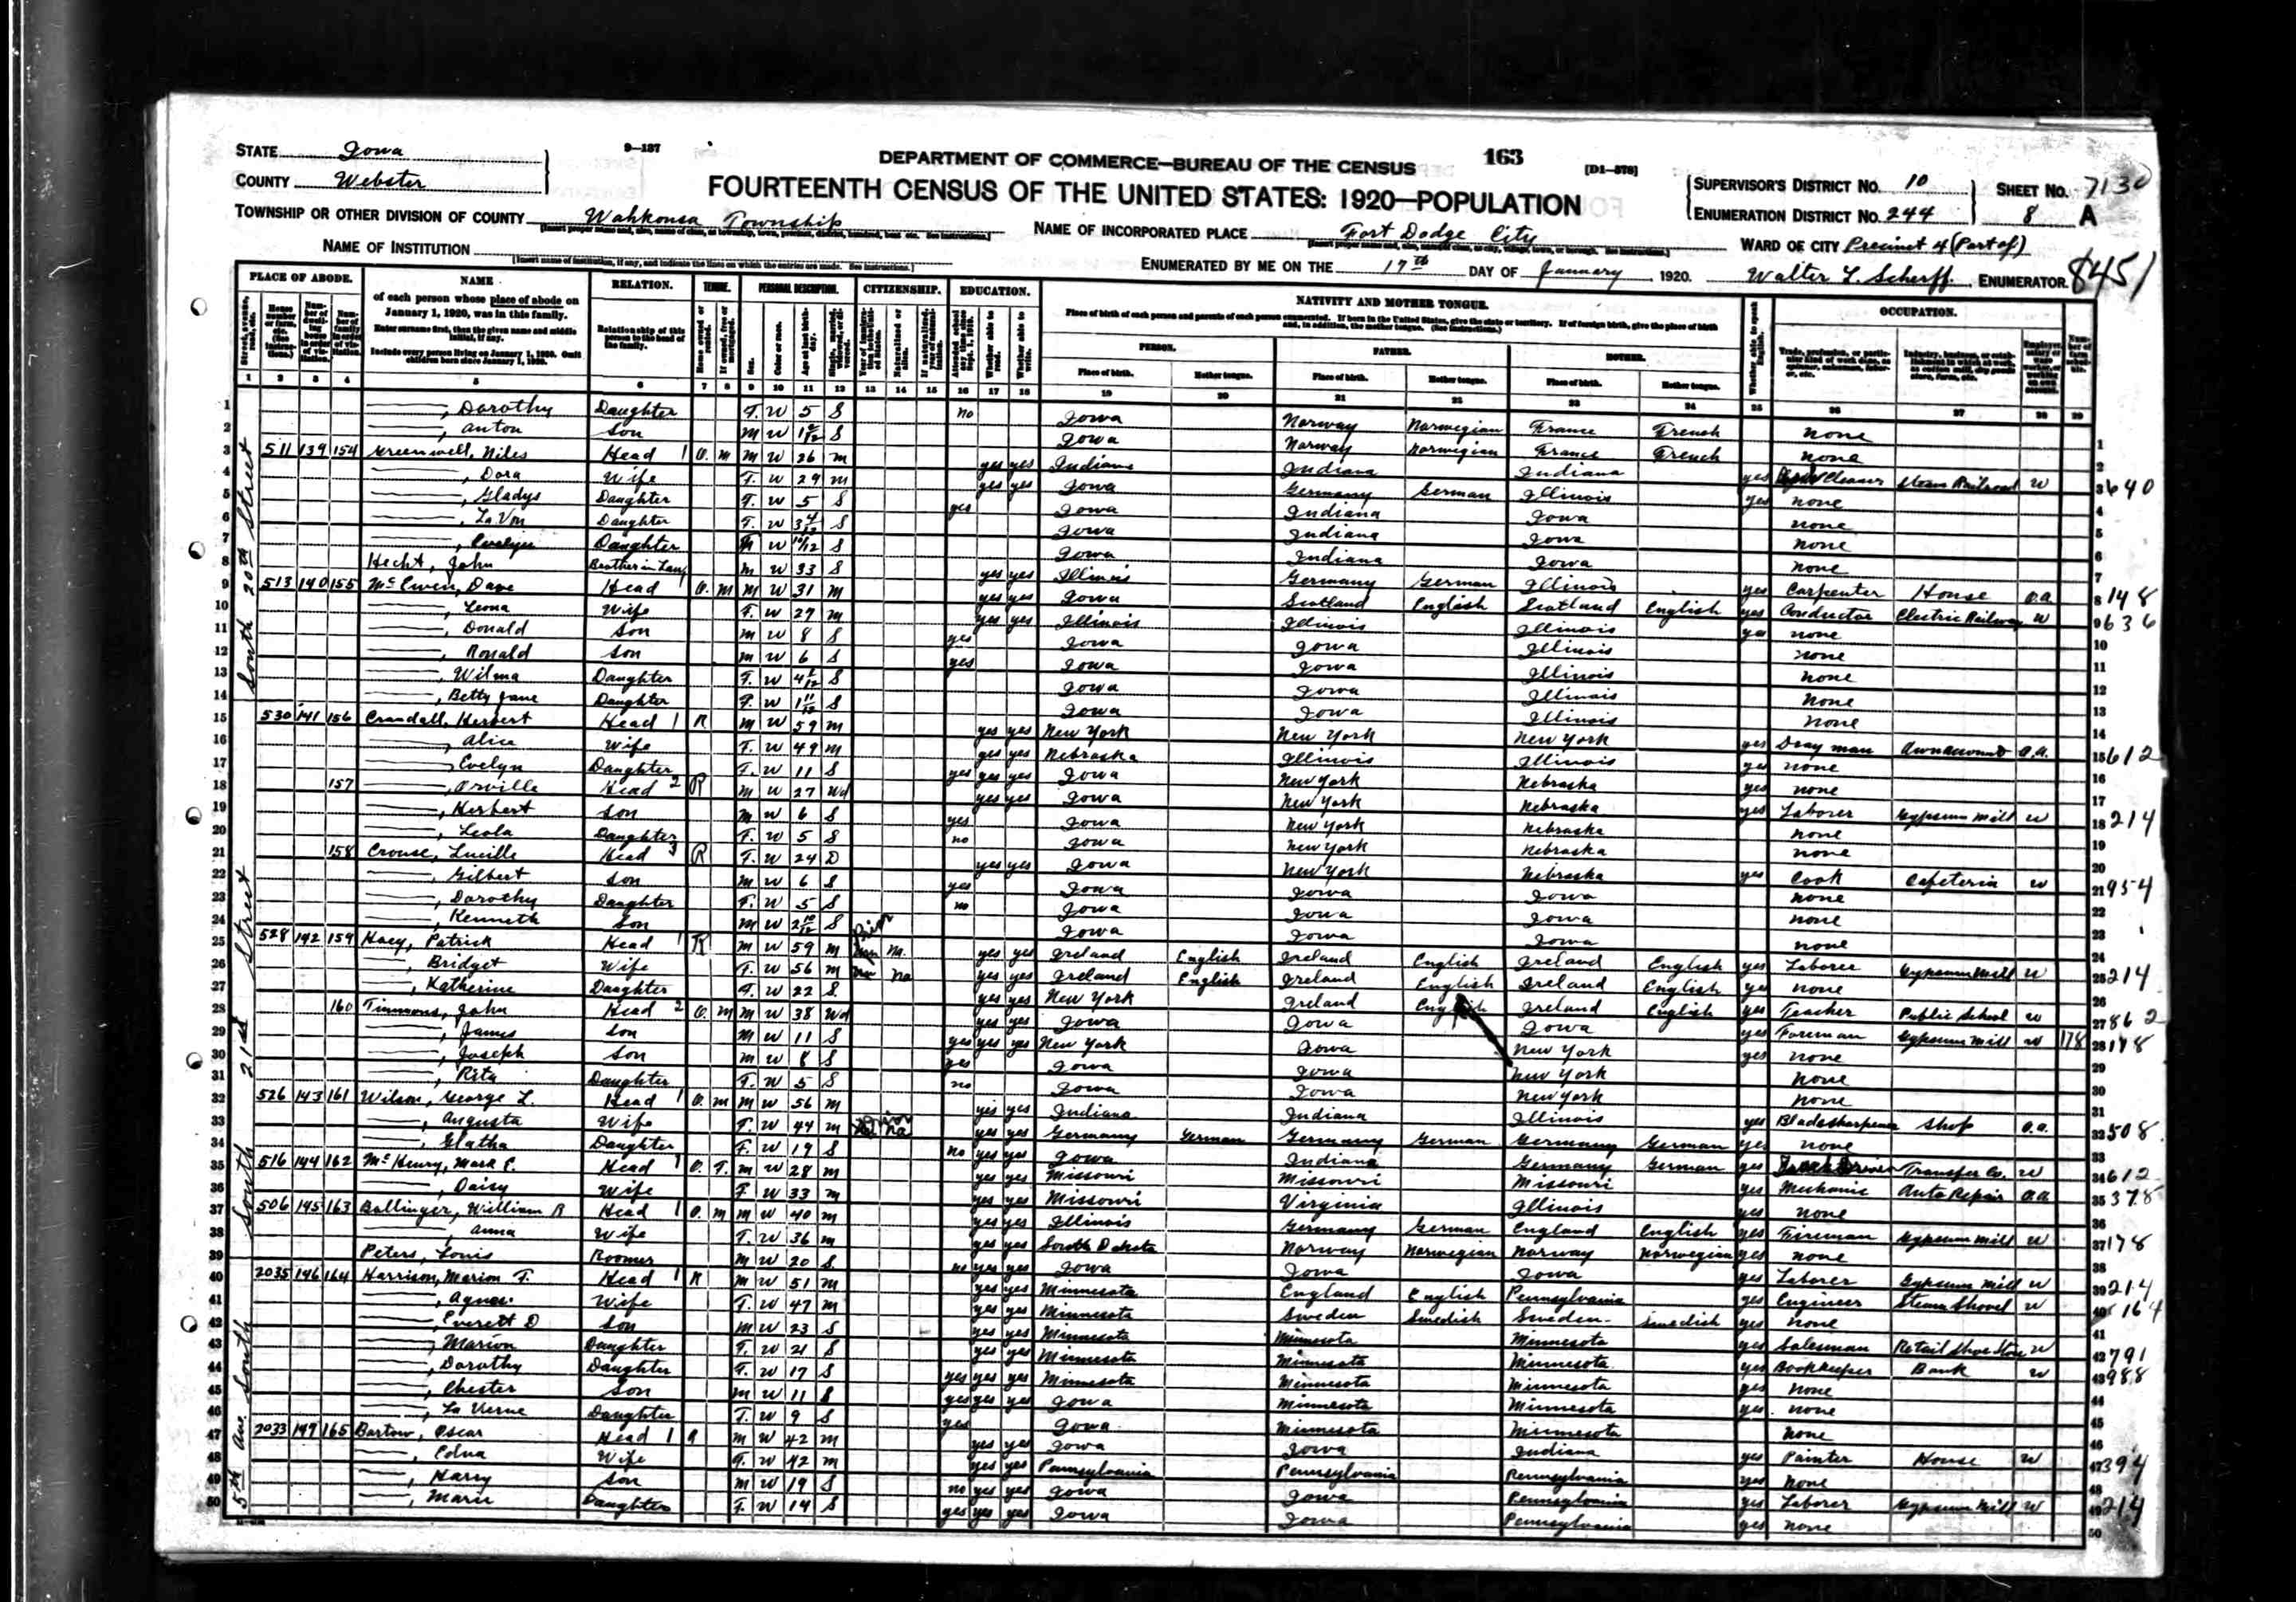 9—187
163
[D1—578]
STATE Iowa
COUNTY Webster
DEPARTMENT OF COMMERCE—BUREAU OF THE CENSUS
FOURTEENTH CENSUS OF THE UNITED STATES: 1920—POPULATION
SUPERVISOR'S DISTRICT No. 10
ENUMERATION DISTRICT No. 244
SHEET No. 7130
8 A
TOWNSHIP OR OTHER DIVISION OF COUNTY Wahkonsa Township
NAME OF INCORPORATED PLACE Fort Dodge City
WARD OF CITY Precinct 4 (Part of)
NAME OF INSTITUTION
ENUMERATED BY ME ON THE 17th DAY OF January, 1920. Walter L. Scherff, ENUMERATOR. 8451
PLACE OF ABODE. NAME RELATION. TENURE. PERSONAL DESCRIPTION. CITIZENSHIP. EDUCATION. NATIVITY AND MOTHER TONGUE. OCCUPATION.
of each person whose place of abode on January 1, 1920, was in this family.
Enter surname first, then the given name and middle initial, if any.
Include every person living on January 1, 1920. Omit children born since January 1, 1920.
Relationship of this person to the head of the family.
PERSON. FATHER. MOTHER.
Place of birth. Mother tongue. Place of birth. Mother tongue. Place of birth. Mother tongue.
1 2 3 4 5 6 7 8 9 10 11 12 13 14 15 16 17 18 19 20 21 22 23 24 25 26 27 28 29
South 20th Street
1 ——, Dorothy Daughter F. W 5 S no Iowa Norway Norwegian France French none
2 ——, Anton Son M W 1 S Iowa Norway Norwegian France French none
3 511 139 154 Greenwell, Niles Head 1 O. M M W 26 M yes yes Indiana Indiana Indiana yes Cleaner Steam Railroad W 640
4 ——, Dora Wife F. W 29 M yes yes Iowa Germany German Illinois yes none
5 ——, Gladys Daughter F. W 5 S yes Iowa Indiana Iowa none
6 ——, La Von Daughter F. W 3 4/12 S Iowa Indiana Iowa none
7 ——, Evelyn Daughter F W 10/12 S Iowa Indiana Iowa none
8 Hecht, John Brother in Law M W 33 S yes yes Illinois Germany German Illinois yes Carpenter House O.A. 148
9 513 140 155 McEwen, Dave Head 1 O. M M W 31 M yes yes Iowa Scotland English Scotland English yes Conductor Electric Railway W 636
10 ——, Leona Wife F. W 27 M yes yes Illinois Illinois Illinois yes none
11 ——, Donald Son M W 8 S yes Iowa Iowa Illinois none
12 ——, Ronald Son M W 6 S yes Iowa Iowa Illinois none
13 ——, Wilma Daughter F. W 4 S Iowa Iowa Illinois none
14 ——, Betty Jane Daughter F. W 1 11/12 S Iowa Iowa Illinois none
15 530 141 156 Crandall, Herbert Head 1 R M W 59 M yes yes New York New York New York yes Dray man Own account O.A. 612
16 ——, Alice Wife F. W 49 M yes yes Nebraska Illinois Illinois yes none
17 ——, Evelyn Daughter F. W 11 S yes yes yes Iowa New York Nebraska yes none
18 157 ——, Orville Head 2 R M W 27 Wd yes yes Iowa New York Nebraska yes Laborer Gypsum Mill W 214
19 ——, Herbert Son M W 6 S yes Iowa New York Nebraska none
20 ——, Leola Daughter F. W 5 S no Iowa New York Nebraska none
21 158 Crouse, Lucille Head 3 R F. W 24 D yes yes Iowa New York Nebraska yes Cook Cafeteria W 954
22 ——, Gilbert Son M W 6 S yes Iowa Iowa Iowa none
23 ——, Dorothy Daughter F. W 5 S no Iowa Iowa Iowa none
24 ——, Kenneth Son M W 2 10/12 S Iowa Iowa Iowa none
South 21st Street
25 528 142 159 Hoey, Patrick Head 1 R M W 59 M yes yes Ireland English Ireland English Ireland English yes Laborer Gypsum Mill W 214
26 ——, Bridget Wife F. W 56 M Un Na yes yes Ireland English Ireland English Ireland English yes none
27 ——, Katherine Daughter F. W 22 S yes yes New York Ireland English Ireland English yes Teacher Public School W 862
28 160 Timmons, John Head 2 O. M M W 38 Wd yes yes Iowa Iowa Iowa yes Foreman Gypsum Mill W 178
29 ——, James Son M W 11 S yes yes yes New York Iowa New York yes none
30 ——, Joseph Son M W 8 S yes Iowa Iowa New York none
31 ——, Rita Daughter F. W 5 S no Iowa Iowa New York none
32 526 143 161 Wilson, George L. Head 1 O. M M W 56 M yes yes Indiana Indiana Illinois yes Blade sharpener Shop O.A. 508
33 ——, Augusta Wife F. W 44 M Na yes yes Germany German Germany German Germany German yes none
34 ——, Glatha Daughter F. W 19 S no yes yes Iowa Indiana Germany German yes Truck Driver Transfer Co. W 612
35 516 144 162 McHenry, Mark E. Head 1 O. F. M W 28 M yes yes Missouri Missouri Missouri yes Mechanic Auto Repair O.A. 378
36 ——, Daisy Wife F. W 33 M yes yes Missouri Virginia Illinois yes none
37 506 145 163 Ballinger, William B Head 1 O. M M W 40 M yes yes Illinois Germany German England English yes Fireman Gypsum Mill W 178
38 ——, Anna Wife F. W 36 M yes yes South Dakota Norway Norwegian Norway Norwegian yes none
39 Peters, Louis Roomer M W 20 S no yes yes Iowa Iowa Iowa yes Laborer Gypsum Mill W 214
5th Ave South
40 2035 146 164 Harrison, Marion F. Head 1 R M W 51 M yes yes Minnesota England English Pennsylvania yes Engineer Steam Shovel W 164
41 ——, Agnes Wife F. W 47 M yes yes Minnesota Sweden Swedish Sweden Swedish yes none
42 ——, Everett D Son M W 23 S yes yes Minnesota Minnesota Minnesota yes Salesman Retail Shoe Store W 791
43 ——, Marion Daughter F. W 21 S yes yes Minnesota Minnesota Minnesota yes Bookkeeper Bank W 988
44 ——, Dorothy Daughter F. W 17 S yes yes yes Minnesota Minnesota Minnesota yes none
45 ——, Chester Son M W 11 S yes yes yes Iowa Minnesota Minnesota yes none
46 ——, La Verne Daughter F. W 9 S yes Iowa Minnesota Minnesota none
47 2033 147 165 Bartow, Oscar Head 1 R M W 42 M yes yes Iowa Iowa Indiana yes Painter House W 394
48 ——, Edna Wife F. W 42 M yes yes Pennsylvania Pennsylvania Pennsylvania yes none
49 ——, Harry Son M W 19 S no yes yes Iowa Iowa Pennsylvania yes Laborer Gypsum Mill W 214
50 ——, Marie Daughter F. W 14 S yes yes yes Iowa Iowa Pennsylvania yes none